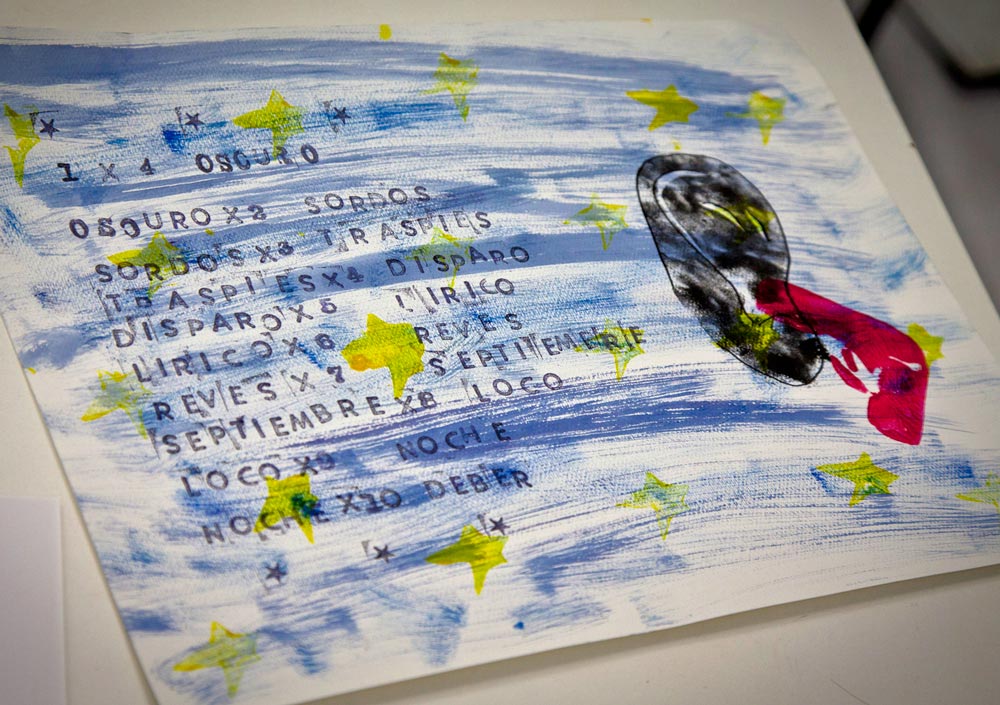 1 X 4 OSCURO
OSCURO X 2 SORDOS
SORDOS X 3 TRASPIES
TRASPIES X 4 DISPARO
DISPARO X 5 LIRICO
LIRICO X 6 REVES
REVES X 7 SEPTIEMBRE
SEPTIEMBRE X8 LOCO
LOCO X9 NOCHE
NOCHE X10 DEBER